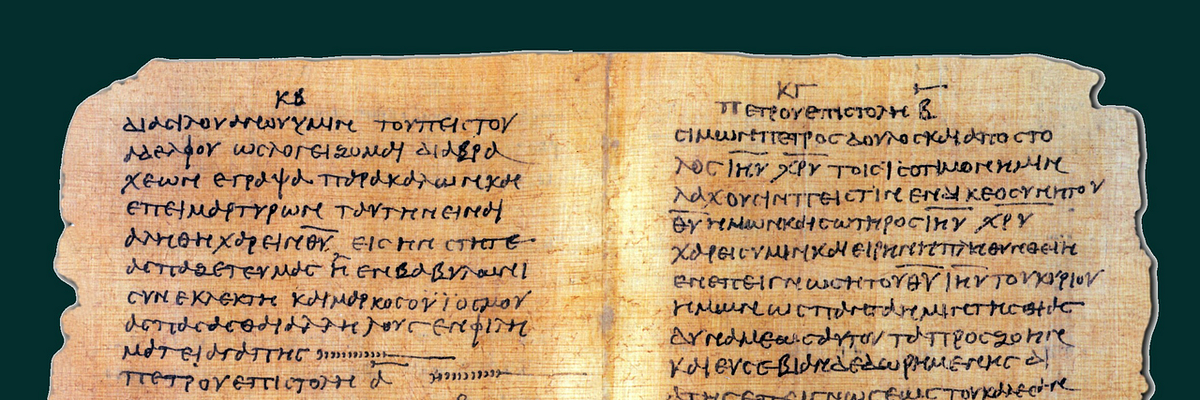 ΚΒ
ΔΙΑϹΙΛΟΥΑΝΟΥΥΜΙΝ ΤΟΥΠΕΙϹΤΟΥ
ΑΔΕΛΦΟΥ ΩϹΛΟΓΕΙΖΟΜΑΙ ΔΙΑΒΡΑ
ΧΕΩΝ ΕΓΡΑΨΑ ΠΑΡΑΚΑΛΩΝΚΑΙ
ΕΠΕΙΜΑΡΤΥΡΩΝ ΤΑΥΤΗΝΕΙΝΑΙ
ΑΛΗΘΗΧΑΡΕΙΝΘ̅Υ̅ ΕΙϹΗΝ ϹΤΗΤΕ
ΑϹΠΑΖΕΤΕΥΜΑϹ Η ΕΝΒΑΒΥΛΩΝΙ
ϹΥΝΕΚΛΕΚΤΗ ΚΑΙΜΑΡΚΟϹΟΥΙΟϹΜΟΥ
ΑϹΠΑϹΑϹΘΑΙΑΛΛΗΛΟΥϹ ΕΝΦΙΛΗ
ΜΑΤΕΙΑΓΑΠΗϹ
ΠΕΤΡΟΥΕΠΙϹΤΟΛΗ Α̅
ΚΓ
ΠΕΤΡΟΥΕΠΙϹΤΟΛΗ Β̅
ϹΙΜΩΝΠΕΤΡΟϹΔΟΥΛΟϹΚΑΙΑΠΟϹΤΟ
ΛΟϹ Ι̅Η̅Υ̅ Χ̅Ρ̅Υ̅ ΤΟΙϹ ΙϹΟΤΙΜΟΝΗΜΙΝ
ΛΑΧΟΥϹΙΝΠΕΙϹΤΙΝ ΕΝΔΙΚΕΟϹΥΝΗΤΟΥ
Θ̅Υ̅ΗΜΩΝΚΑΙϹΩΤΗΡΟϹ Ι̅Η̅Υ̅ Χ̅Ρ̅Υ̅
ΧΑΡΕΙϹΥΜΙΝΚΑΙΕΙΡΗΝΗΠΛΗΘΥΝΘΕΙΗ
ΕΝΕΠΕΙΓΝΩϹΗΤΟΥΘ̅Υ̅ Ι̅Η̅Υ̅ΤΟΥΚΥΡΙΟΥ
ΗΜΩΝ ΩϹΠΑΝΤΑΗΜΙΝΤΗϹΘΙΑϹ
ΔΥΝΑΜΕΩϹΑΥΤΟΥ ΤΑΠΡΟϹΖΩΗΝ
ΚΑΙΕΥϹΕΒΙΑΝΔΕΔΩΡΗΜΕΝΗϹ ΔΙ
ΑΤΗϹΕΠΕΙΓΝΩϹΕΩϹ ΤΟΥΚΑΛΕϹΑΝ